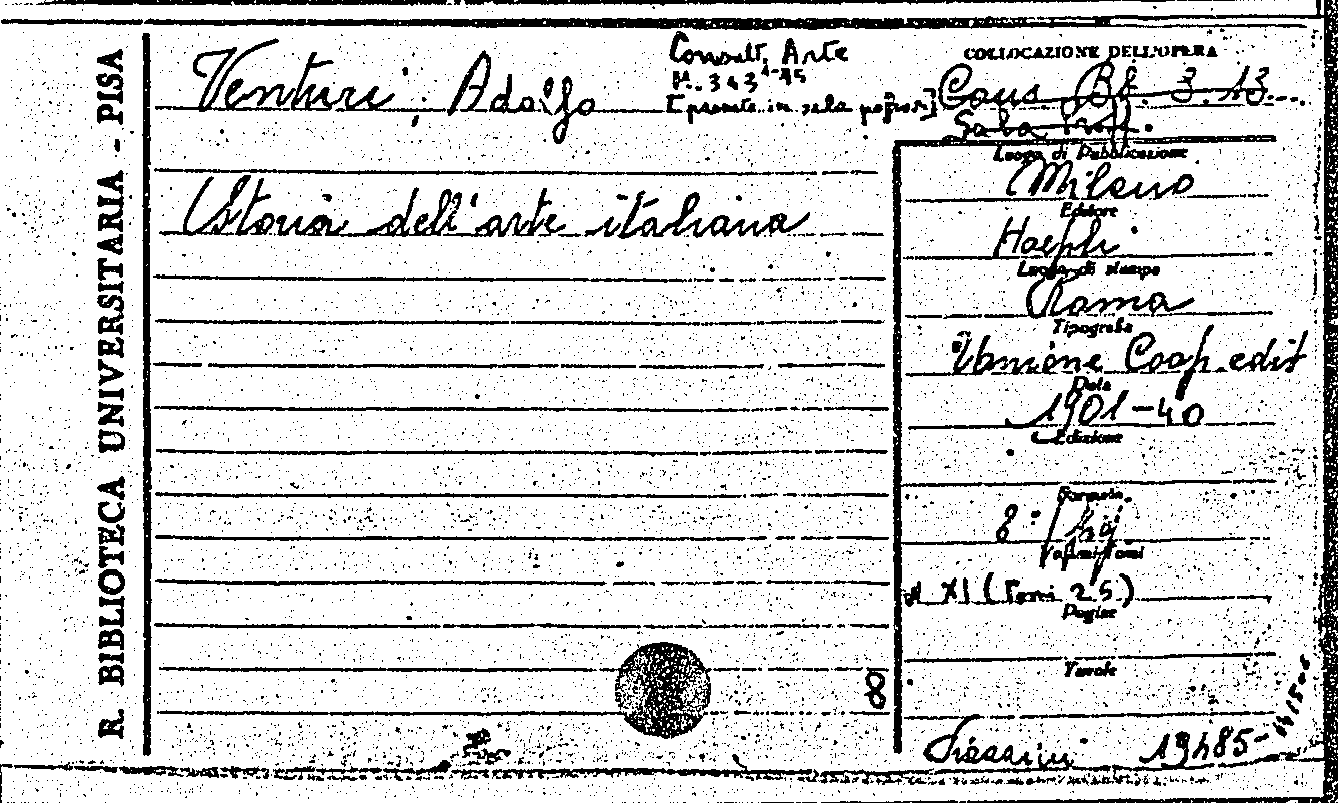 R. BIBLIOTECA UNIVERSITARIA - PISA
Venturi, Adolfo
Consult. Arte
[presente in sala
Storia dell'arte italiana
8
COLLOCAZIONE DELL'OPERA
Cons Bf. 3. 13
Sala Proff.
Luogo di Pubblicazione
Milano
Editore
Hoepli
Luogo di stampa
Roma
Tipografia
Unione Coop. edit
Data
1901-40
Edizione
Formato
8º/
Volumi Tomi
XI (Tomi 25)
Pagine
Tavole